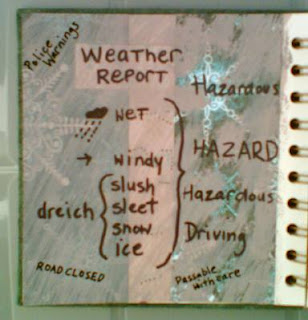 Police
Warnings
Weather
Report
Hazardous
wet
HAZARD
windy
slush
Hazardous
dreich
sleet
snow
Driving
ice
ROAD CLOSED
Passable
with care